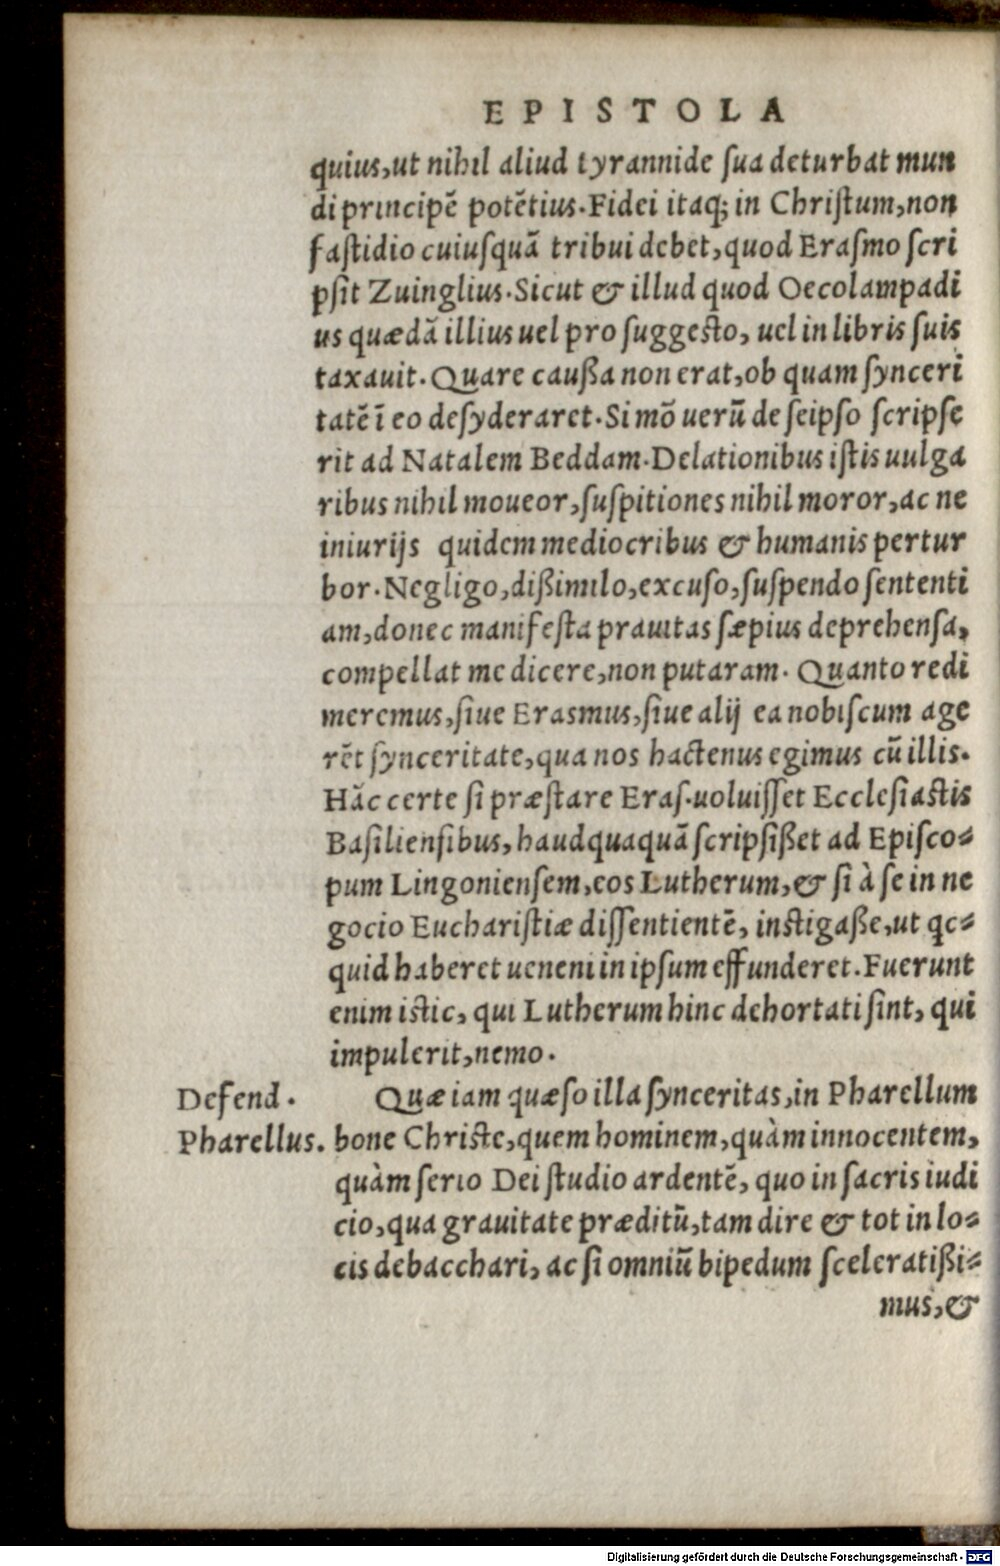 EPISTOLA
quius,ut nihil aliud tyrannide ſua deturbat mun
di principẽ potẽtius.Fidei itaq; in Chriſtum,non
faſtidio cuiuſquã tribui debet,quod Eraſmo ſcri
pſit Zuinglius.Sicut & illud quod Oecolampadi
us quædã illius uel pro ſuggeſto, uel in libris ſuis
taxauit.Quare cauſſa non erat,ob quam ſynceri
tatẽ ĩ eo deſyderaret.Si mõ uerũ de ſeipſo ſcripſe
rit ad Natalem Beddam.Delationibus iſtis uulga
ribus nihil moueor,ſuſpitiones nihil moror,ac ne
iniurijs quidem mediocribus & humanis pertur
bor.Negligo,dißimulo,excuſo,ſuſpendo ſententi
am,donec manifeſta prauitas ſæpius deprehenſa,
compellat me dicere,non putaram. Quanto redi
meremus,ſiue Erasmus,ſiue alij ea nobiſcum age
rẽt ſynceritate,qua nos hactenus egimus cũ illis.
Hãc certe ſi præſtare Eraſ.uoluiſſet Eccleſiastis
Baſilienſibus,haudquaquã ſcripſißet ad Epiſco⸗
pum Lingonienſem,eos Lutherum,& ſi à ſe in ne
gocio Euchariſtiæ diſſentientẽ, instigaße,ut qc⸗
quid haberet ueneni in ipſum effunderet.Fuerunt
enim istic, qui Lutherum hinc dehortati ſint, qui
impulerit,nemo.
Defend.
Pharellus.
Quæ iam quæſo illa ſynceritas,in Pharellum
bone Christe,quem hominem,quàm innocentem,
quàm ſerio Dei ſtudio ardentẽ, quo in ſacris iudi
cio,qua grauitate præditũ,tam dire & tot in lo⸗
cis debacchari, ac ſi omniũ bipedum ſceleratißi⸗
mus,&
Digitalisierung gefördert durch die Deutsche Forschungsgemeinschaft - DFG